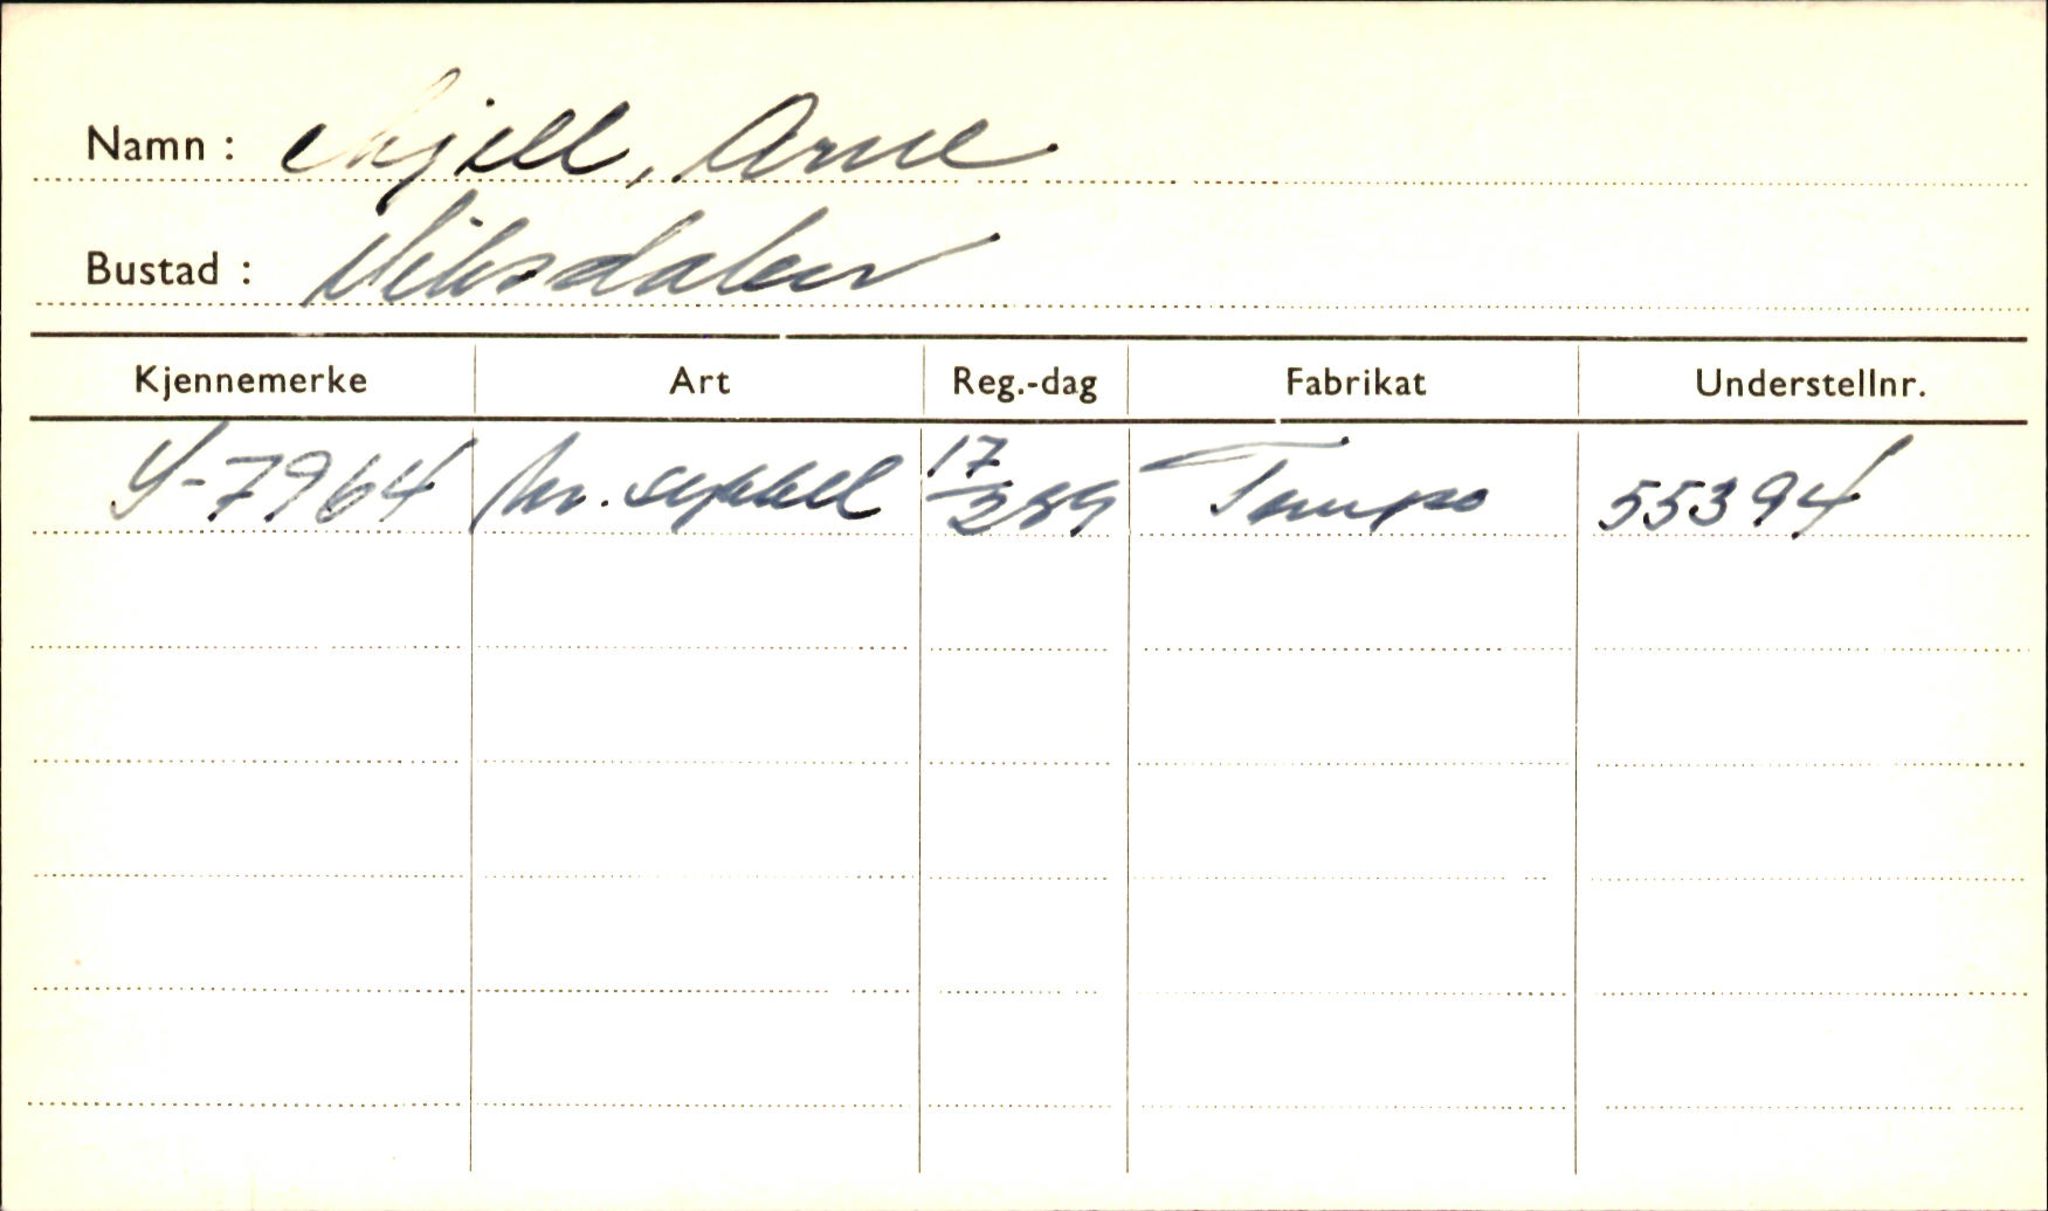 Namn : Mjell, Arne
Bustad : Viksdalen
Kjennemerke Art Reg.-dag Fabrikat Understellnr.
S-7964 m.sykkel 17/2 59 Tempo 55394